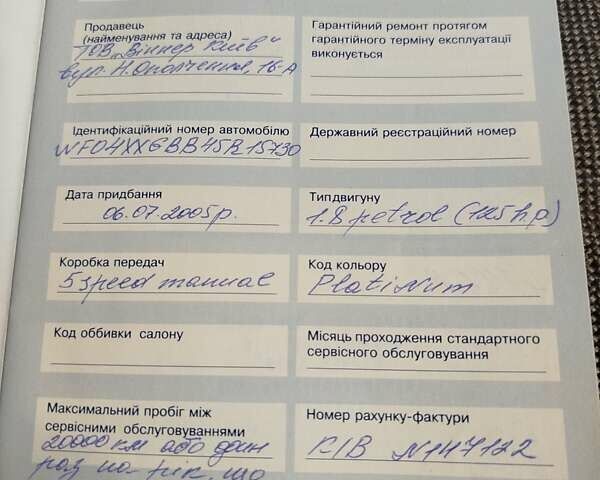 Продавець
(найменування та адреса)
ТОВ „Віннер Київ"
вул. Н. Ополчення, 16-А
Гарантійний ремонт протягом
гарантійного терміну експлуатації
виконується
Ідентифікаційний номер автомобілю
WF04XXGBB45R15730
Державний реєстраційний номер
Дата придбання
06.07.2005р.
Тип двигуну
1.8 petrol (125 h.p)
Коробка передач
5 speed manual
Код кольору
PlatiNum
Код оббивки салону
Місяць проходження стандартного
сервісного обслуговування
Максимальний пробіг між
сервісними обслуговуваннями
20000 км або один
раз на рік, що
Номер рахунку-фактури
KIB N147122